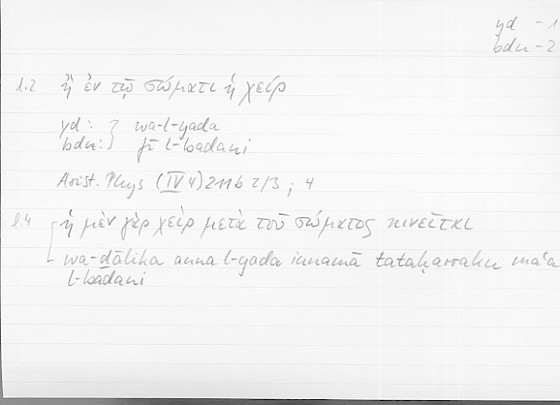 yd - 1
bdn - 2
1.2 ἢ ἐν τῷ σώματι ἡ χείρ
yd: } wa-l-yada
bdn: } fī l-badani
Arist. Phys (IV 4) 211b 2/3 ; 4
l.4 ἡ μὲν γὰρ χεὶρ μετὰ τοῦ σώματος κινεῖται
wa-ḏālika anna l-yada innamā tataḥarraku maʿa
l-badani